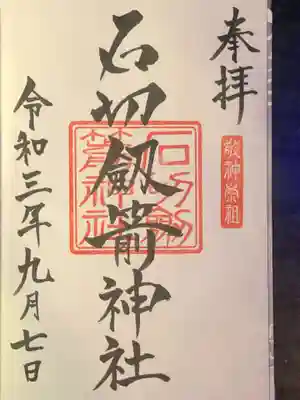 奉拝
敬神崇祖
石切劔箭神社
石切劔箭神社
令和三年九月七日